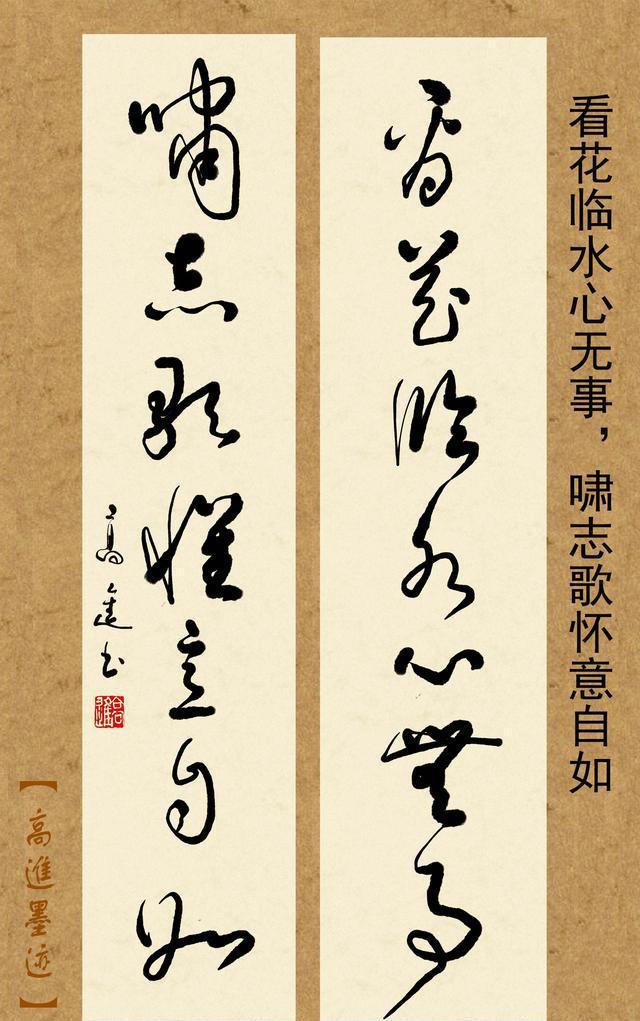 看花临水心无事，啸志歌怀意自如
看花臨水心無事
嘯志歌懷意自如
高進书
【高進墨迹】